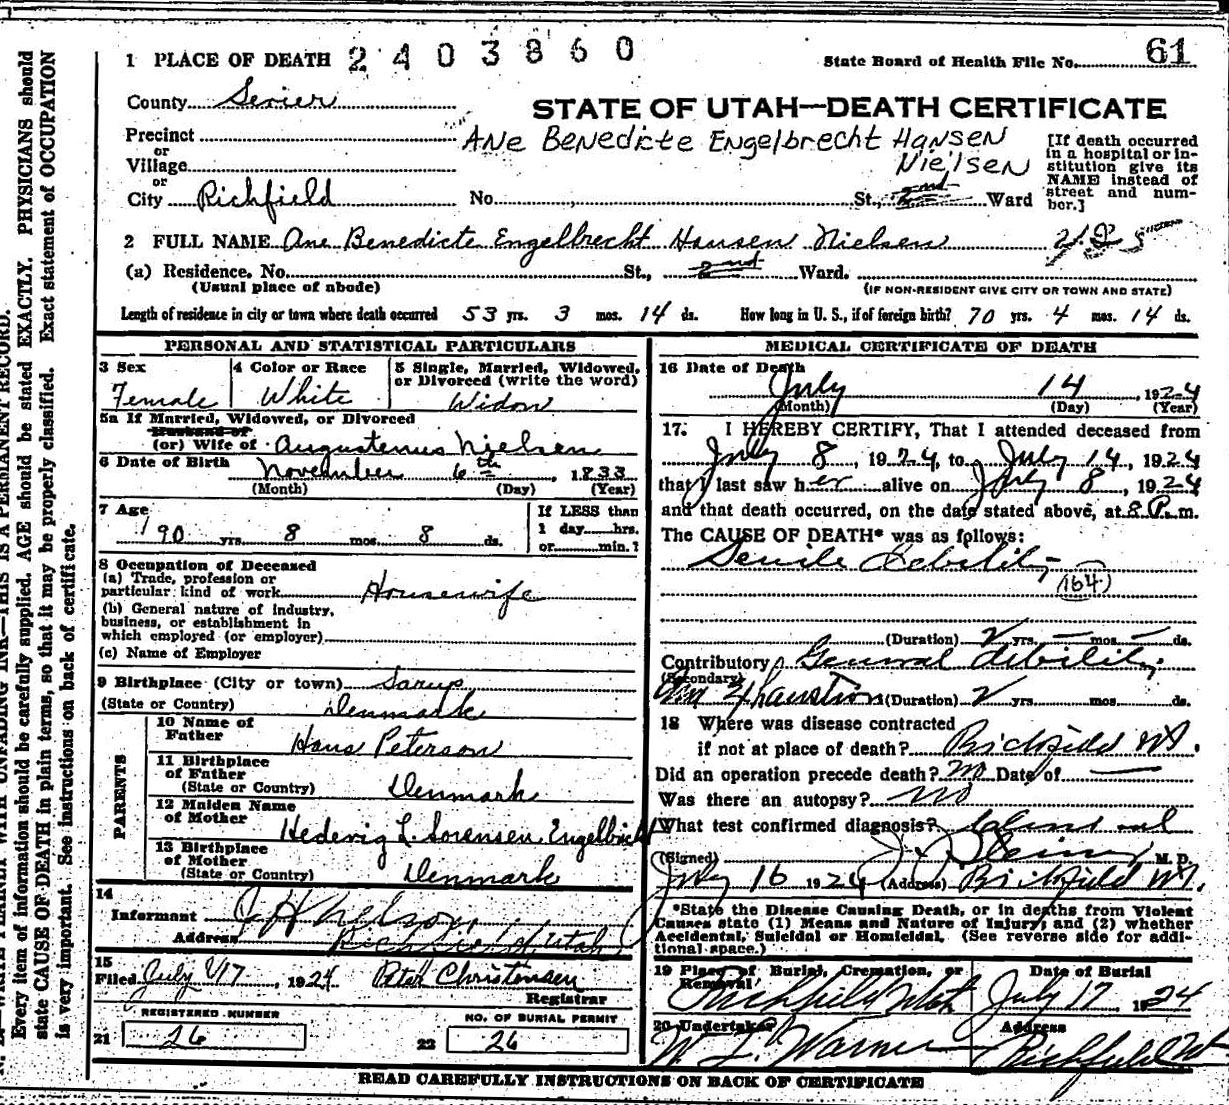 1 PLACE OF DEATH 2403860
State Board of Health File No. 61
County Sevier
STATE OF UTAH—DEATH CERTIFICATE
Precinct
or
Village
or
City Richfield No. St., 2nd Ward
ANE BENEDICTE ENgelbrecht HANSEN
NIELSEN
[If death occurred
in a hospital or in-
stitution give its
NAME instead of
street and num-
ber.]
2 FULL NAME Ane Benedicte Engelbrecht Hansen Nielsen
(a) Residence, No. St., 2nd Ward.
(Usual place of abode) (IF NON-RESIDENT GIVE CITY OR TOWN AND STATE)
Length of residence in city or town where death occurred 53 yrs. 3 mos. 14 ds. How long in U. S., if of foreign birth? 70 yrs. 4 mos. 14 ds.
PERSONAL AND STATISTICAL PARTICULARS
3 Sex
Female
4 Color or Race
White
5 Single, Married, Widowed,
or Divorced (write the word)
Widow
5a If Married, Widowed, or Divorced
Husband of
(or) Wife of Augustenus Nielsen
6 Date of Birth November 6th, 1833
(Month) (Day) (Year)
7 Age
90 yrs. 8 mos. 8 ds.
If LESS than
1 day hrs.
or min.?
8 Occupation of Deceased
(a) Trade, profession or
particular kind of work Housewife
(b) General nature of industry,
business, or establishment in
which employed (or employer)
(c) Name of Employer
9 Birthplace (City or town) Sarup
(State or Country) Denmark
PARENTS
10 Name of
Father Hans Peterson
11 Birthplace
of Father
(State or Country) Denmark
12 Maiden Name
of Mother Hedevig L. Sorensen Engelbrecht
13 Birthplace
of Mother
(State or Country) Denmark
14
Informant J H Nelson
Address Richfield, Utah
15
Filed July 17, 1924 Christensen
Registrar
REGISTERED NUMBER
21 26
NO. OF BURIAL PERMIT
22 26
MEDICAL CERTIFICATE OF DEATH
16 Date of Death
July 14, 1924
(Month) (Day) (Year)
17. I HEREBY CERTIFY, That I attended deceased from
July 8, 1924, to July 14, 1924
that I last saw her alive on July 8, 1924
and that death occurred, on the date stated above, at 8 P. m.
The CAUSE OF DEATH* was as follows:
Senile debility
(164)
(Duration) 2 yrs. — mos. — ds.
Contributory General debility
(Secondary)
Exhaustion (Duration) 2 yrs. mos. ds.
18 Where was disease contracted
if not at place of death? Richfield Ut.
Did an operation precede death? no Date of —
Was there an autopsy? no
What test confirmed diagnosis?
(Signed) M. D.
July 16 1924 (Address) Richfield Ut.
*State the Disease Causing Death, or in deaths from Violent
Causes state (1) Means and Nature of Injury; and (2) whether
Accidental, Suicidal or Homicidal. (See reverse side for addi-
tional space.)
19 Place of Burial, Cremation, or
Removal
Richfield Utah
Date of Burial
July 17 1924
20 Undertaker
W. L. Warner
Address
Richfield Ut
READ CAREFULLY INSTRUCTIONS ON BACK OF CERTIFICATE
Every item of information should be carefully supplied. AGE should be stated EXACTLY. PHYSICIANS should
state CAUSE OF DEATH in plain terms, so that it may be properly classified. Exact statement of OCCUPATION
is very important. See instructions on back of certificate.